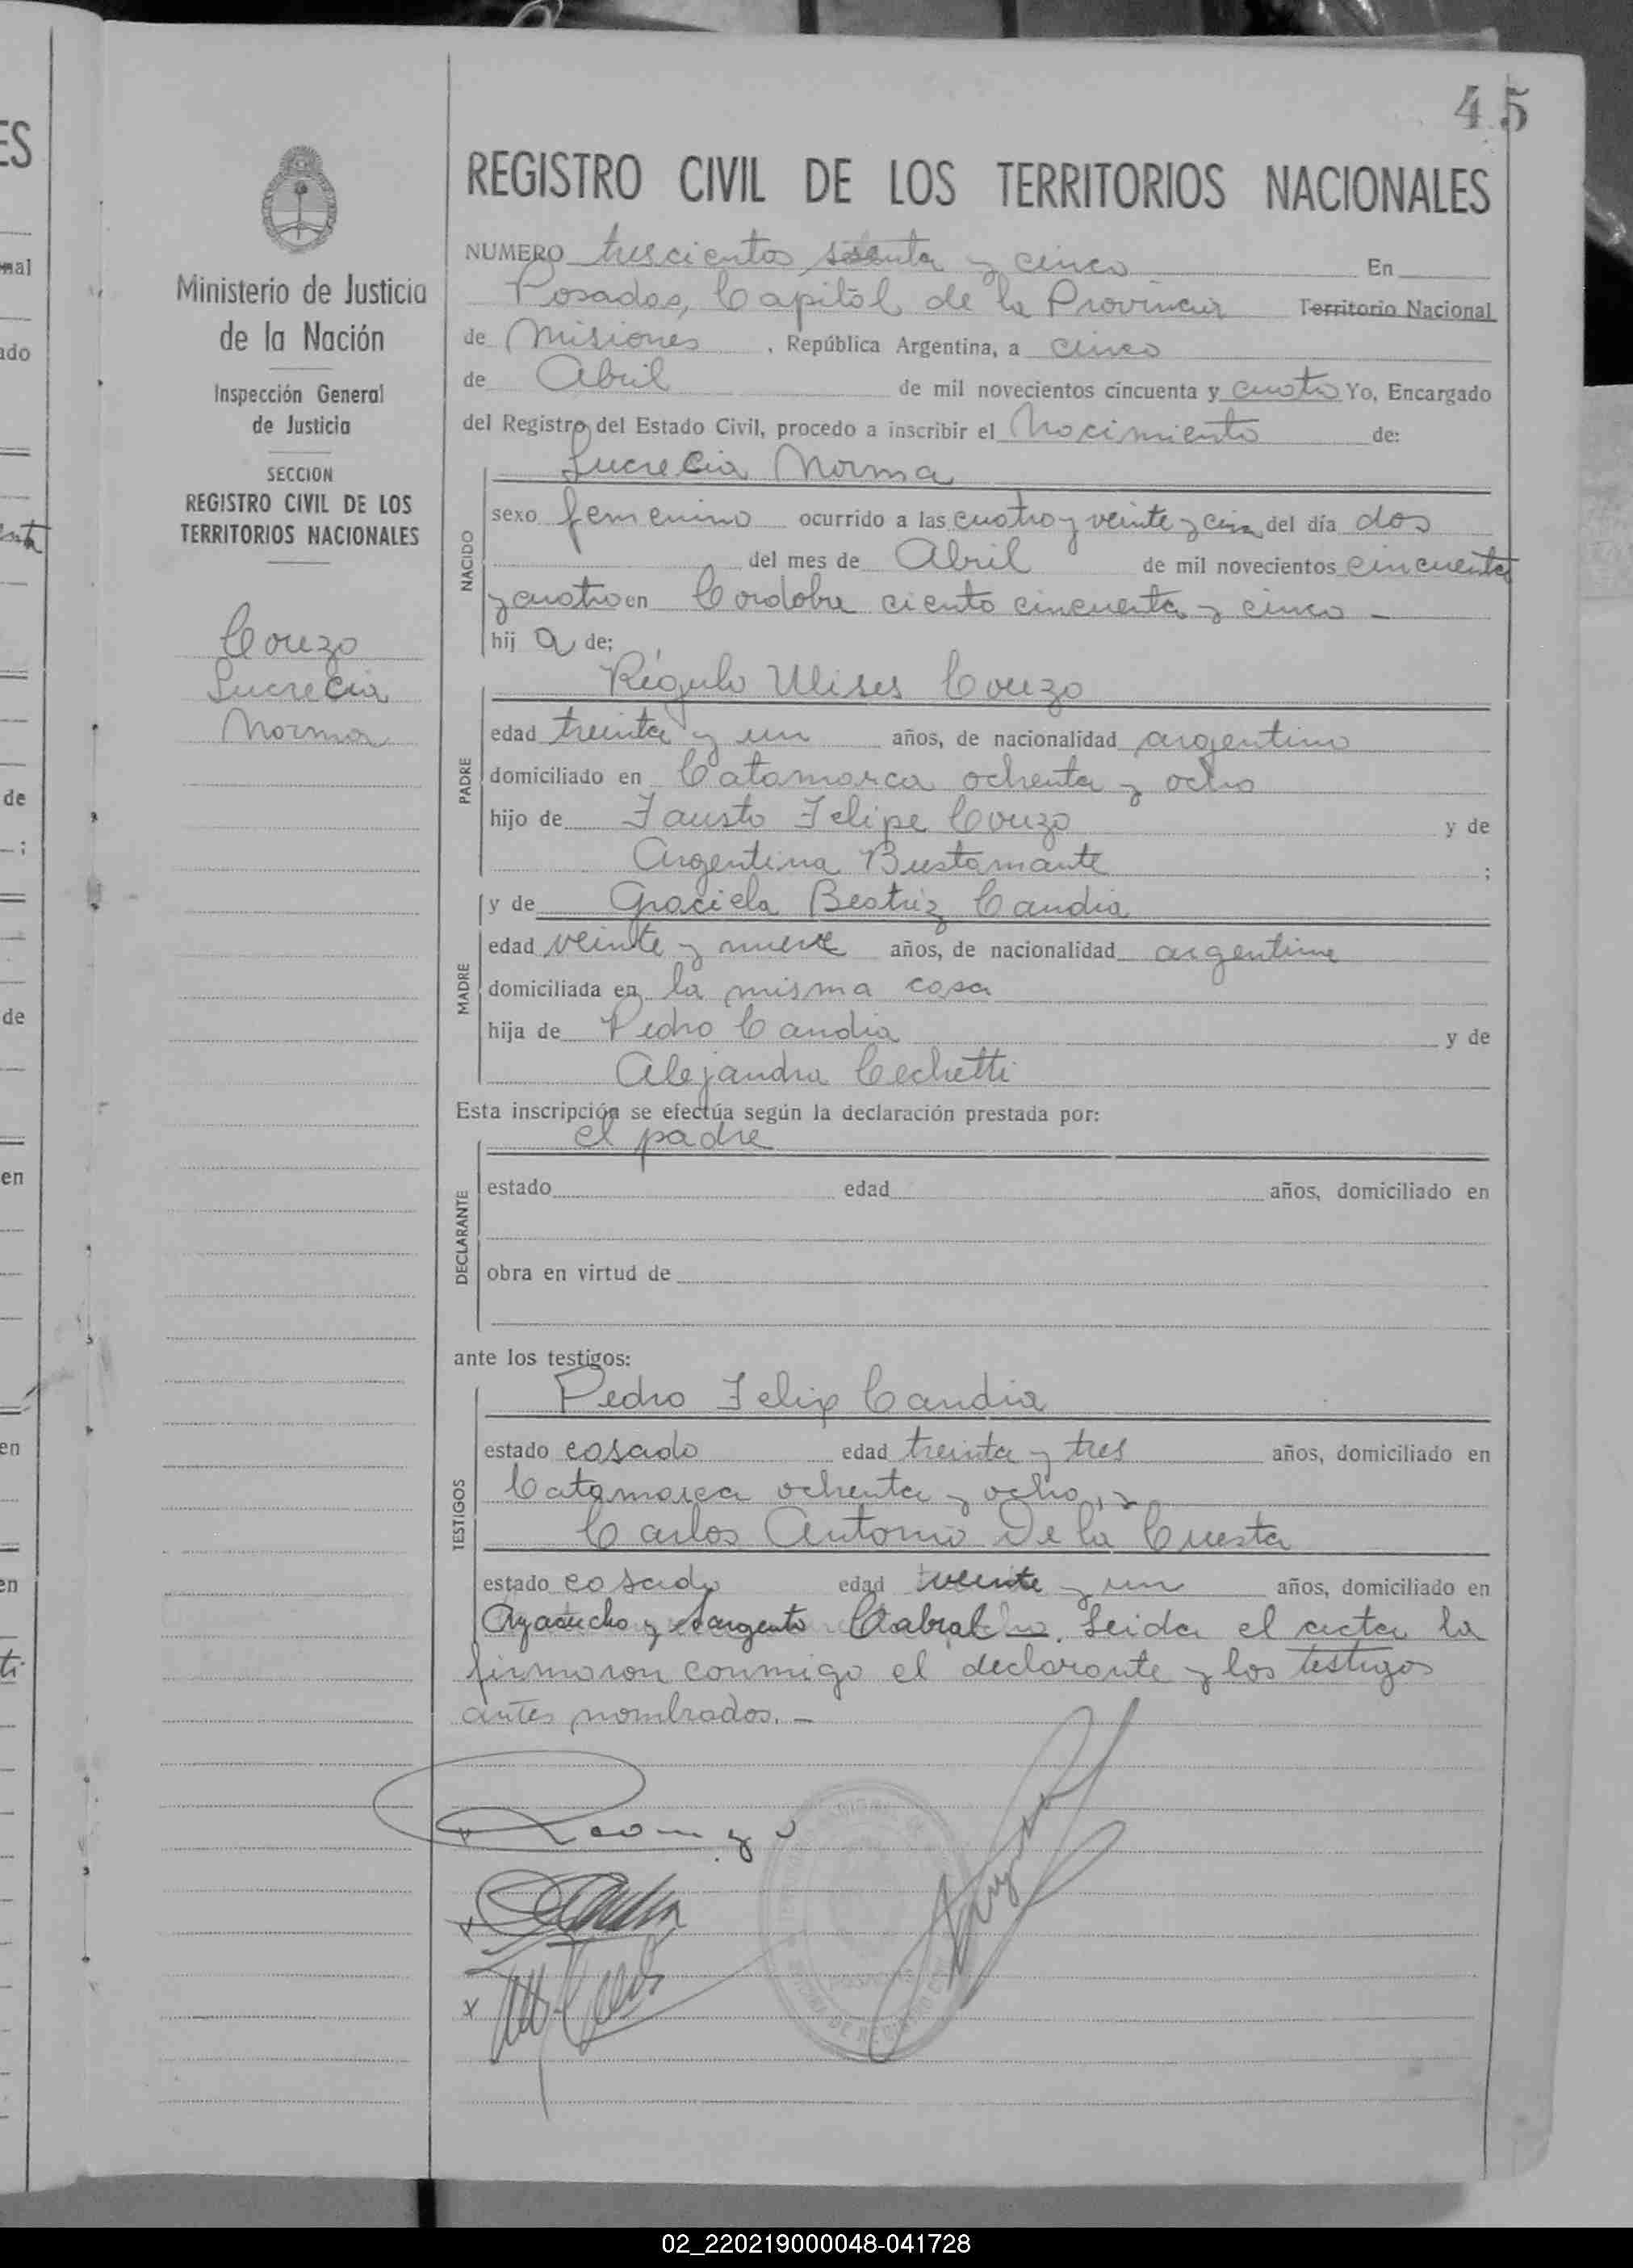 45
REGISTRO CIVIL DE LOS TERRITORIOS NACIONALES
Ministerio de Justicia
de la Nación
Inspección General
de Justicia
SECCION
REGISTRO CIVIL DE LOS
TERRITORIOS NACIONALES
Couzo
Lucrecia
Norma
NUMERO trescientos y cinco En
Posadas, Capital de la Provincia Territorio Nacional
de Misiones, República Argentina, a cinco
de Abril de mil novecientos cincuenta y cuatro Yo, Encargado
del Registro del Estado Civil, procedo a inscribir el Nacimiento de:
NACIDO
Lucrecia Norma
sexo femenino ocurrido a las cuatro y veinte y cinco del día dos
del mes de Abril de mil novecientos cincuenta
y cuatro en Cordoba ciento cincuenta y cinco -
hija de;
PADRE
Régulo Ulises Couzo
edad treinta y un años, de nacionalidad argentino
domiciliado en Catamarca ochenta y ocho
hijo de Fausto Felipe Couzo y de
Argentina Bustamante ;
MADRE
y de Graciela Beatriz Candia
edad veinte y nueve años, de nacionalidad argentina
domiciliada en la misma casa
hija de Pedro Candia y de
Alejandra Cechetti
Esta inscripción se efectúa según la declaración prestada por:
DECLARANTE
el padre
estado edad años, domiciliado en
obra en virtud de
ante los testigos:
TESTIGOS
Pedro Felix Candia
estado casado edad treinta y tres años, domiciliado en
Catamarca ochenta y ocho, y
Carlos Antonio De la Cuesta
estado casado edad y un años, domiciliado en
Ayacucho y Sargento Cabral. Leida el acta la
firmaron conmigo el declarante y los testigos
antes nombrados. -
02_220219000048-041728